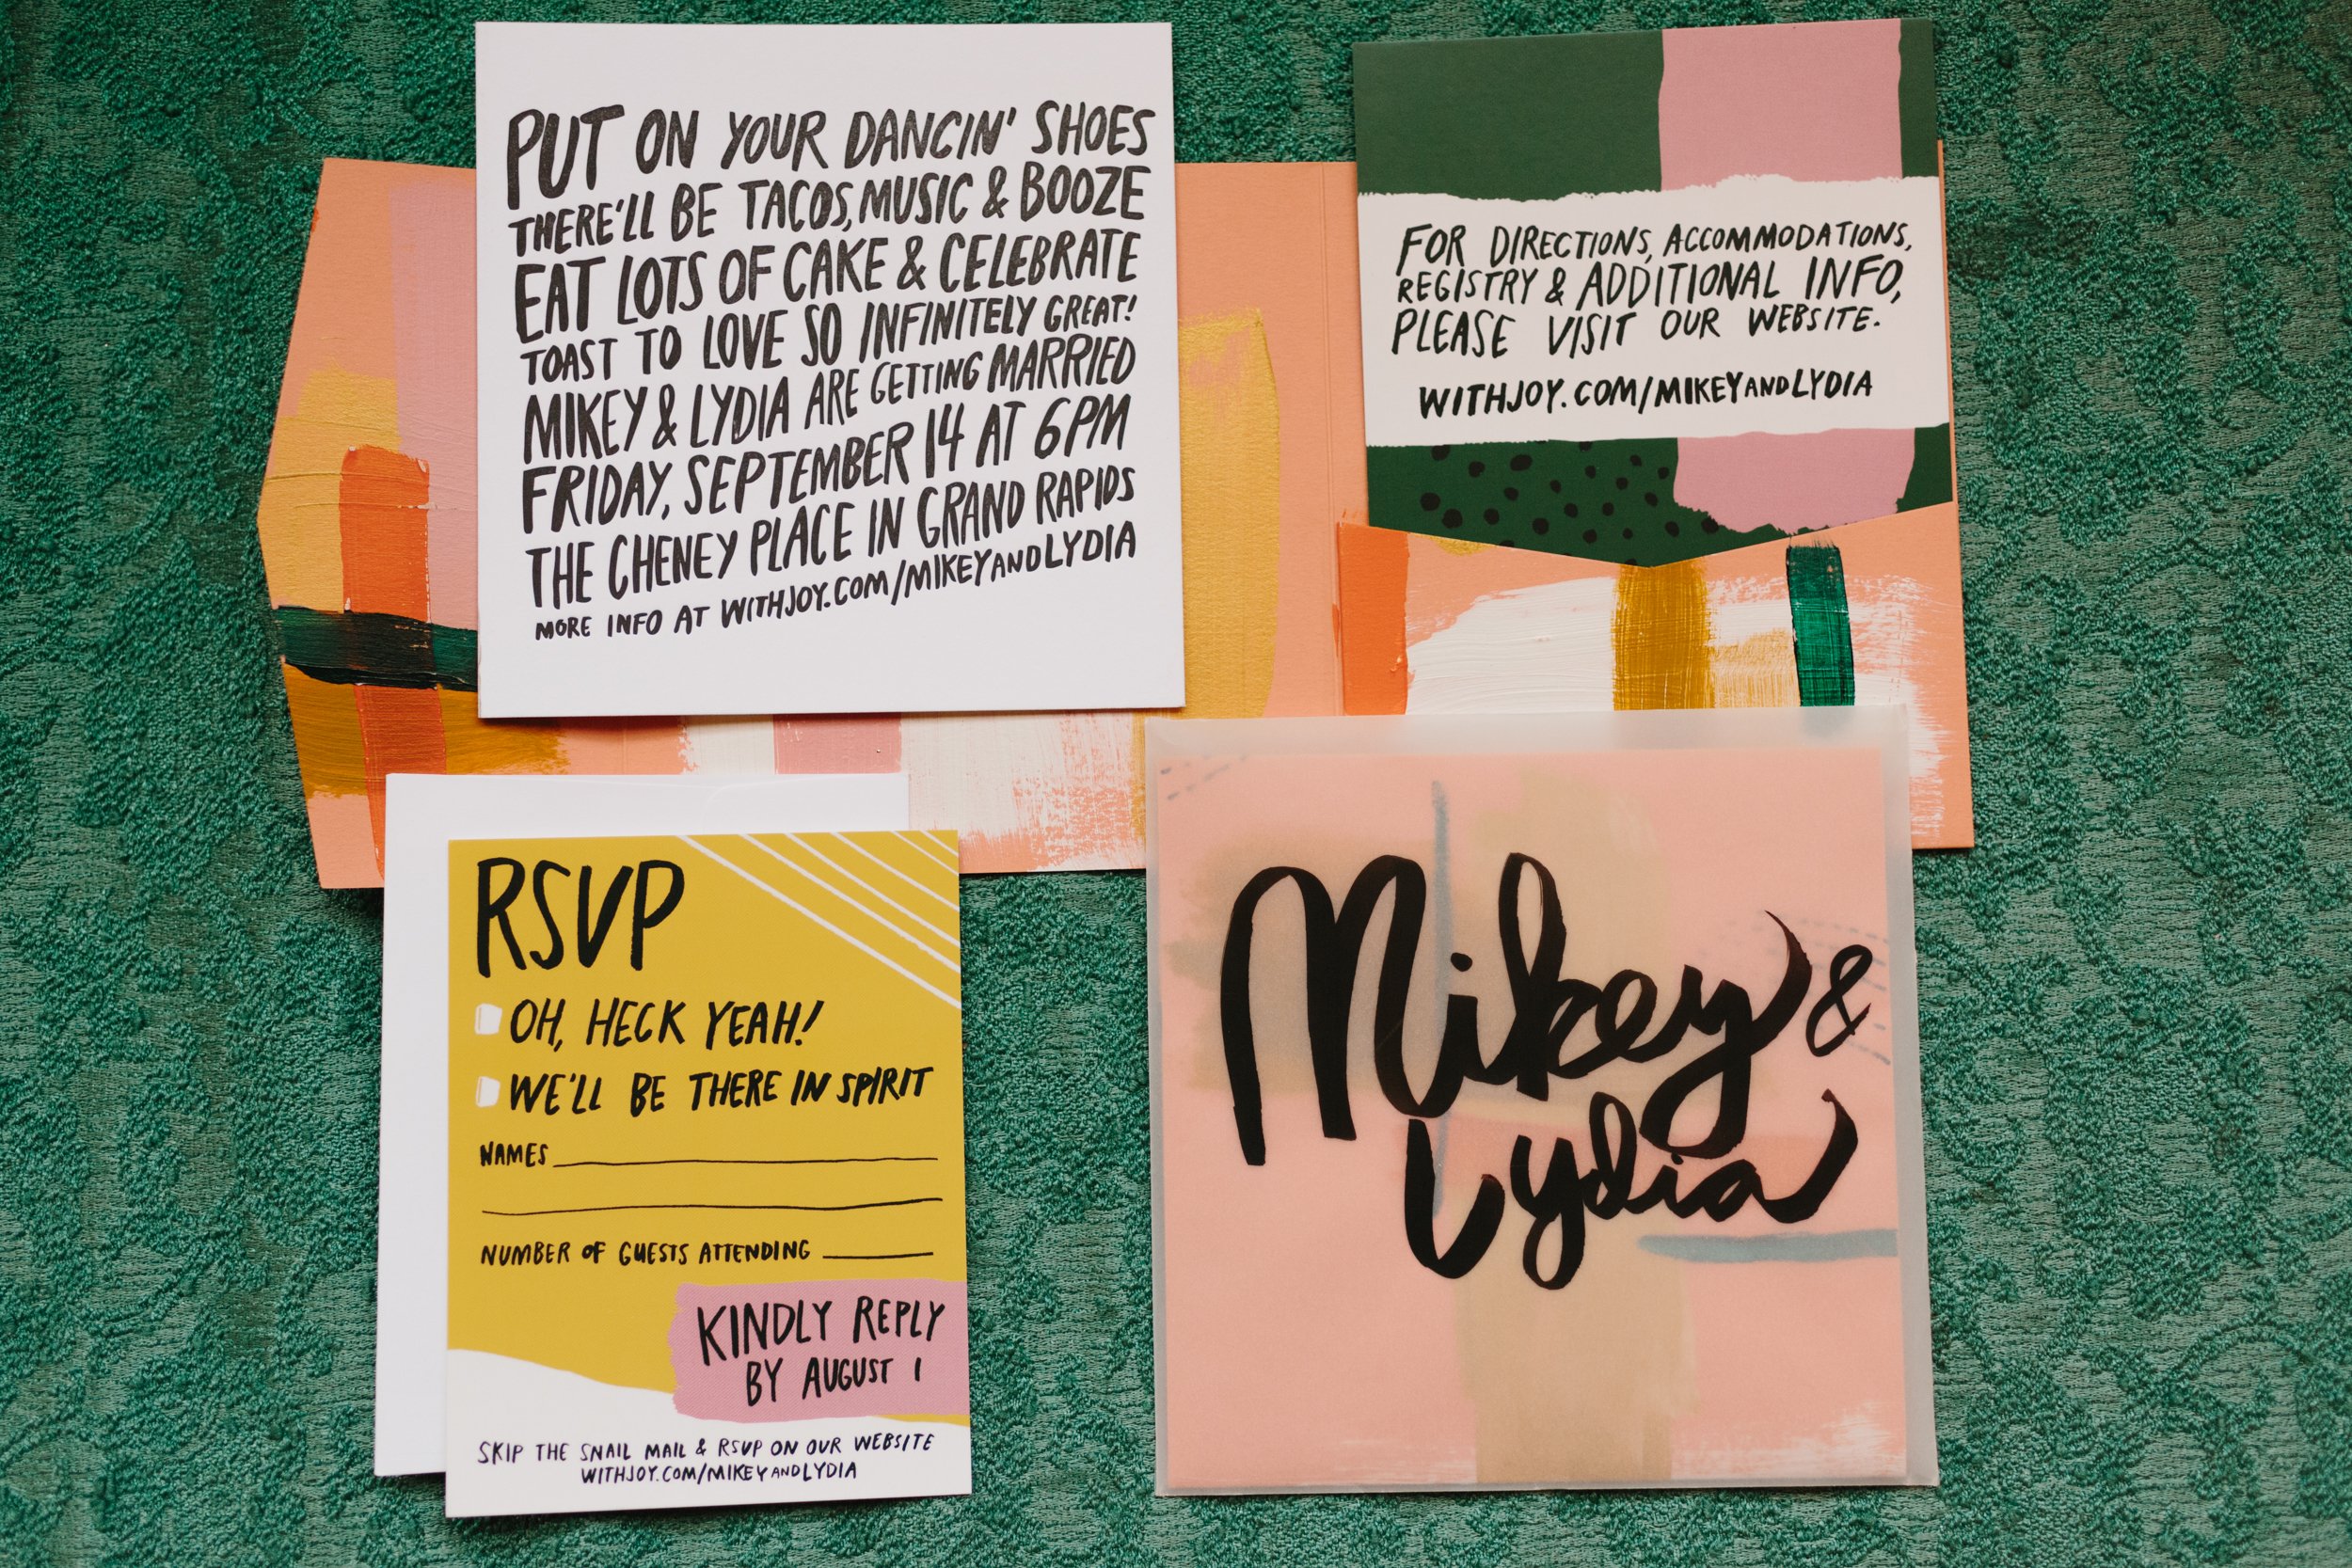 PUT ON YOUR DANCIN' SHOES
THERE'LL BE TACOS, MUSIC & BOOZE
EAT LOTS OF CAKE & CELEBRATE
TOAST TO LOVE SO INFINITELY GREAT!
MIKEY & LYDIA ARE GETTING MARRIED
FRIDAY, SEPTEMBER 14 AT 6PM
THE CHENEY PLACE IN GRAND RAPIDS
MORE INFO AT WITHJOY.COM/MIKEYANDLYDIA
FOR DIRECTIONS, ACCOMMODATIONS,
REGISTRY & ADDITIONAL INFO,
PLEASE VISIT OUR WEBSITE.
WITHJOY.COM/MIKEYANDLYDIA
RSVP
OH, HECK YEAH!
WE'LL BE THERE IN SPIRIT
NAMES
NUMBER OF GUESTS ATTENDING
KINDLY REPLY
BY AUGUST 1
SKIP THE SNAIL MAIL & RSVP ON OUR WEBSITE
WITHJOY.COM/MIKEYANDLYDIA
Mikey &
Lydia